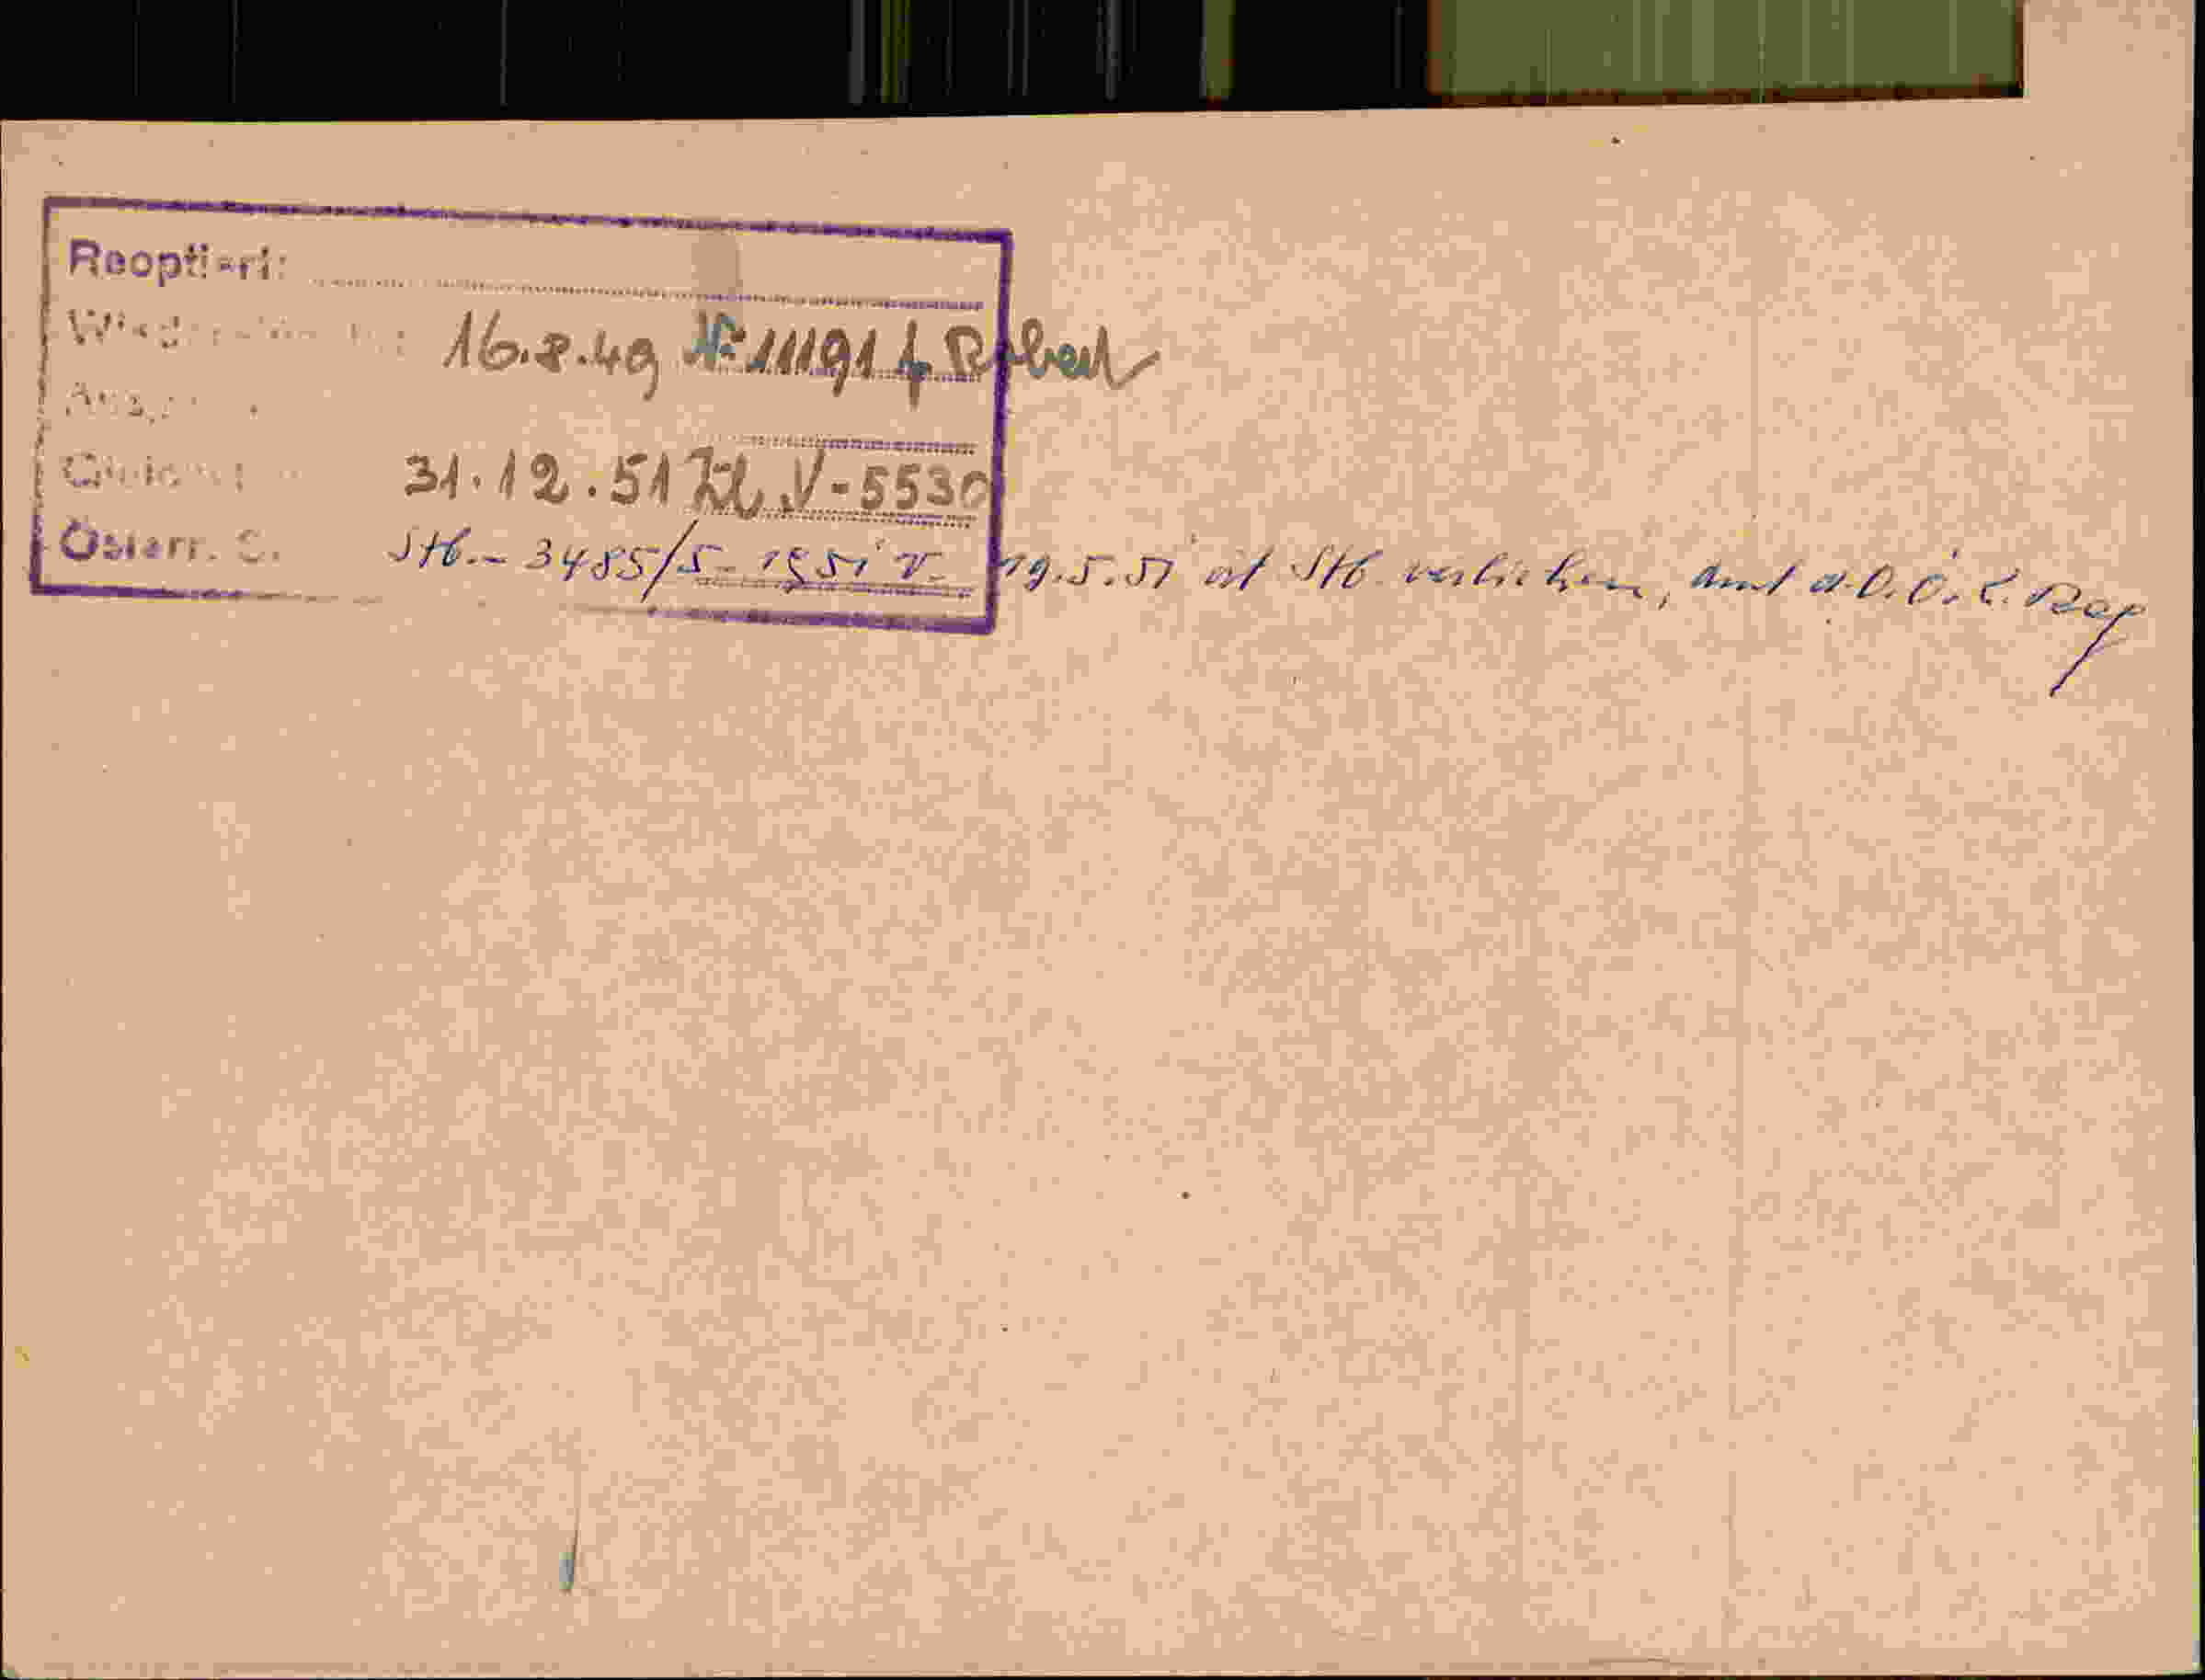 Reoptiert:
16.8.49 Nr 111914 Robert
31.12.51 Zl. V-5530
Österr. S. Stb.- 3485/5-1951 v. 19.5.51 ist Stb. verliehen, Amt d. O. Ö. L. Reg